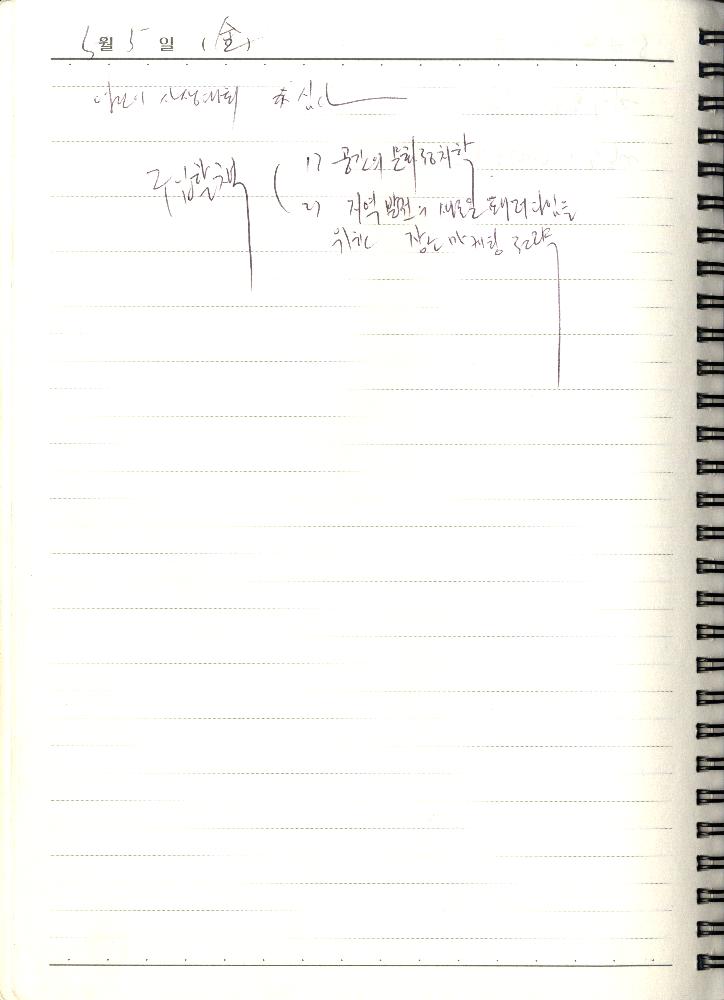 5월 5일 (金)
어린이 사생대회 本심사
구입할책 ( 1) 공간의 문화정치학
2) 지역발전의 새로운 패러다임을
위한 장소마케팅 전략